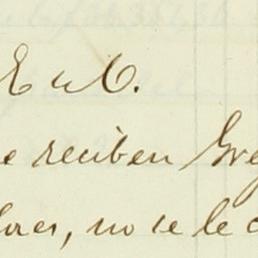 E u C.
e reciben Gre
lores, no se le c